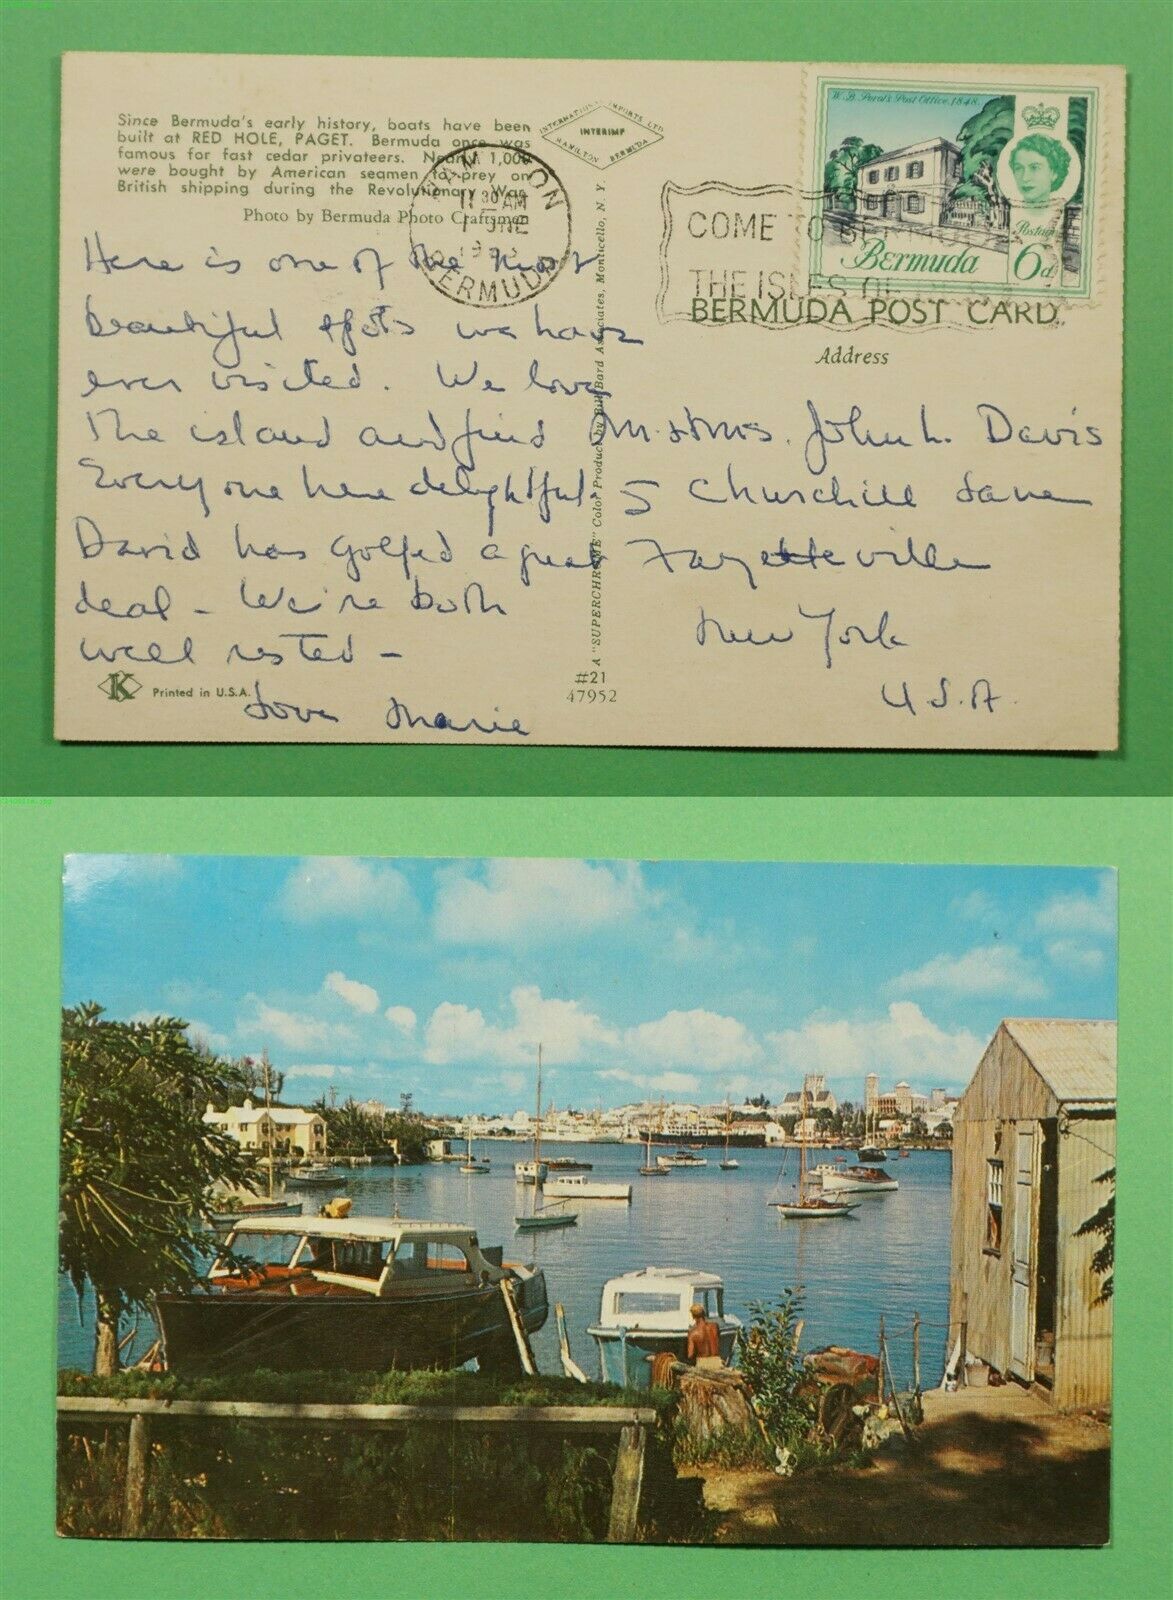 Since Bermuda's early history, boats have been
built at RED HOLE, PAGET. Bermuda once was
famous for fast cedar privateers. Nearly 1,000
were bought by American seamen to prey on
British shipping during the Revolutionary War.
Photo by Bermuda Photo Craftsmen
INTERNATIONAL IMPORTS LTD
INTERIMP
HAMILTON BERMUDA
HAMILTON
11 30 AM
1 JUNE
BERMUDA
COME TO BERMUDA
THE ISLES OF
W. B. Perot's Post Office, 1848.
Postage
Bermuda 6d
BERMUDA POST CARD
Address
Here is one of the most
beautiful spots we have
ever visited. We love
the island and find
Everyone here delightful.
David has golfed a great
deal - We're both
well rested -
Love Marie
Mr. & Mrs. John L. Davis
5 Churchill Lane
Fayetteville
New York
U.S.A.
A "SUPERCHROME" Color Product by Bill Bard Associates, Monticello, N. Y.
K Printed in U.S.A.
#21
47952